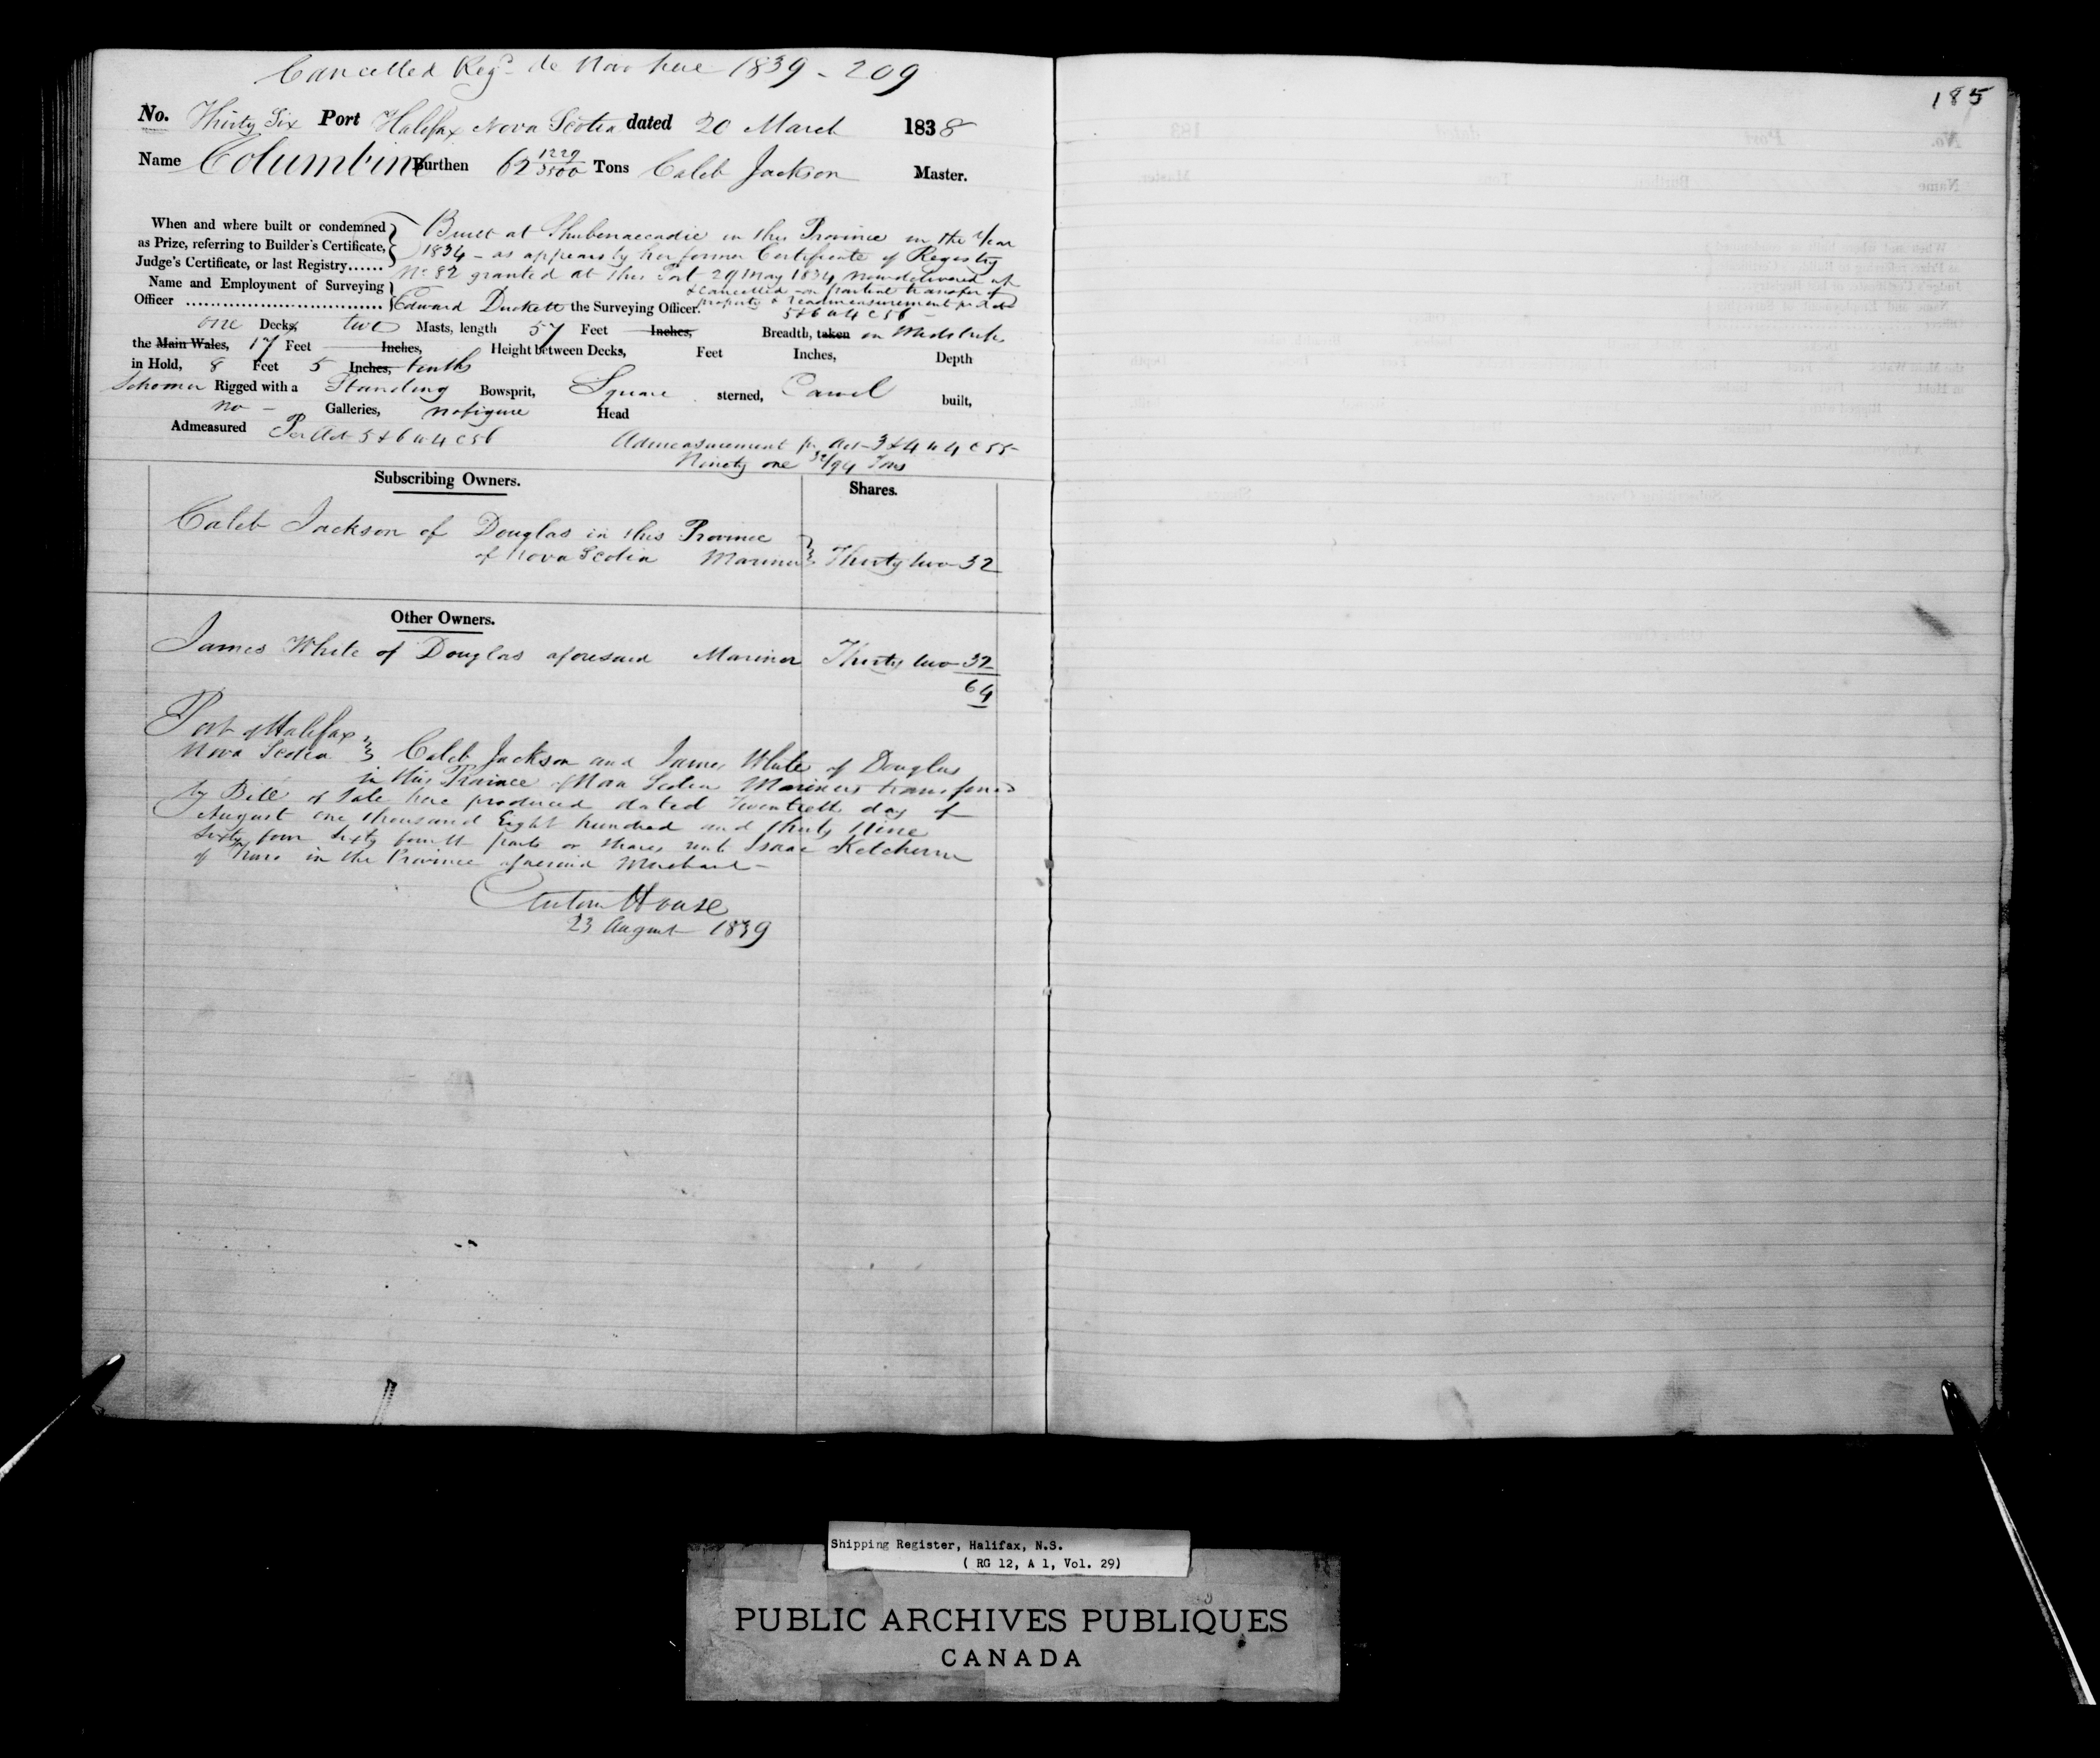 Cancelled Regd de Novo here 1839 - 209
185
No. Thirty Six Port Halifax Nova Scotia dated 20 March 1838
Name Columbine Burthen 62 1229/3500 Tons Caleb Jackson Master.
When and where built or condemned as Prize, referring to Builder's Certificate, Judge's Certificate, or last Registry......
Built at Shubenaccadie in this Province in the Year
1834 - as appears by her former Certificate of Registry
No 82 granted at this Port 29 May 1834 now delivered up
& cancelled on partial transfer of
property & readmeasurement pr Act
5 & 6 W 4 C 56 -
Name and Employment of Surveying Officer
Edward Duckett the Surveying Officer.
one Decks, two Masts, length 57 Feet Inches, Breadth, taken in Midships
the Main Wales, 17 Feet Inches, Height between Decks, Feet Inches, Depth
in Hold, 8 Feet 5 Inches, tenths
Schooner Rigged with a Standing Bowsprit, Square sterned, Carvel built,
no - Galleries, no figure Head
Admeasured Per Act 5 & 6 W 4 C 56 Admeasurement pr Act 3 & 4 W 4 C 55 -
Ninety one 32/94 Tons
Subscribing Owners. Shares.
Caleb Jackson of Douglas in this Province
of Nova Scotia Mariner Thirty two 32
Other Owners.
James White of Douglas aforesaid Mariner Thirty two 32
64
Port of Halifax
Nova Scotia Caleb Jackson and James White of Douglas
in this Province of Nova Scotia Mariners transferred
by Bill of Sale here produced dated Twentieth day of
August one thousand Eight hundred and thirty Nine
Sixty four Sixty fourth parts or shares unto Isaac
of Truro in the Province aforesaid Merchant -
Custom House
23 August 1839
Shipping Register, Halifax, N.S.
( RG 12, A 1, Vol. 29)
PUBLIC ARCHIVES PUBLIQUES
CANADA